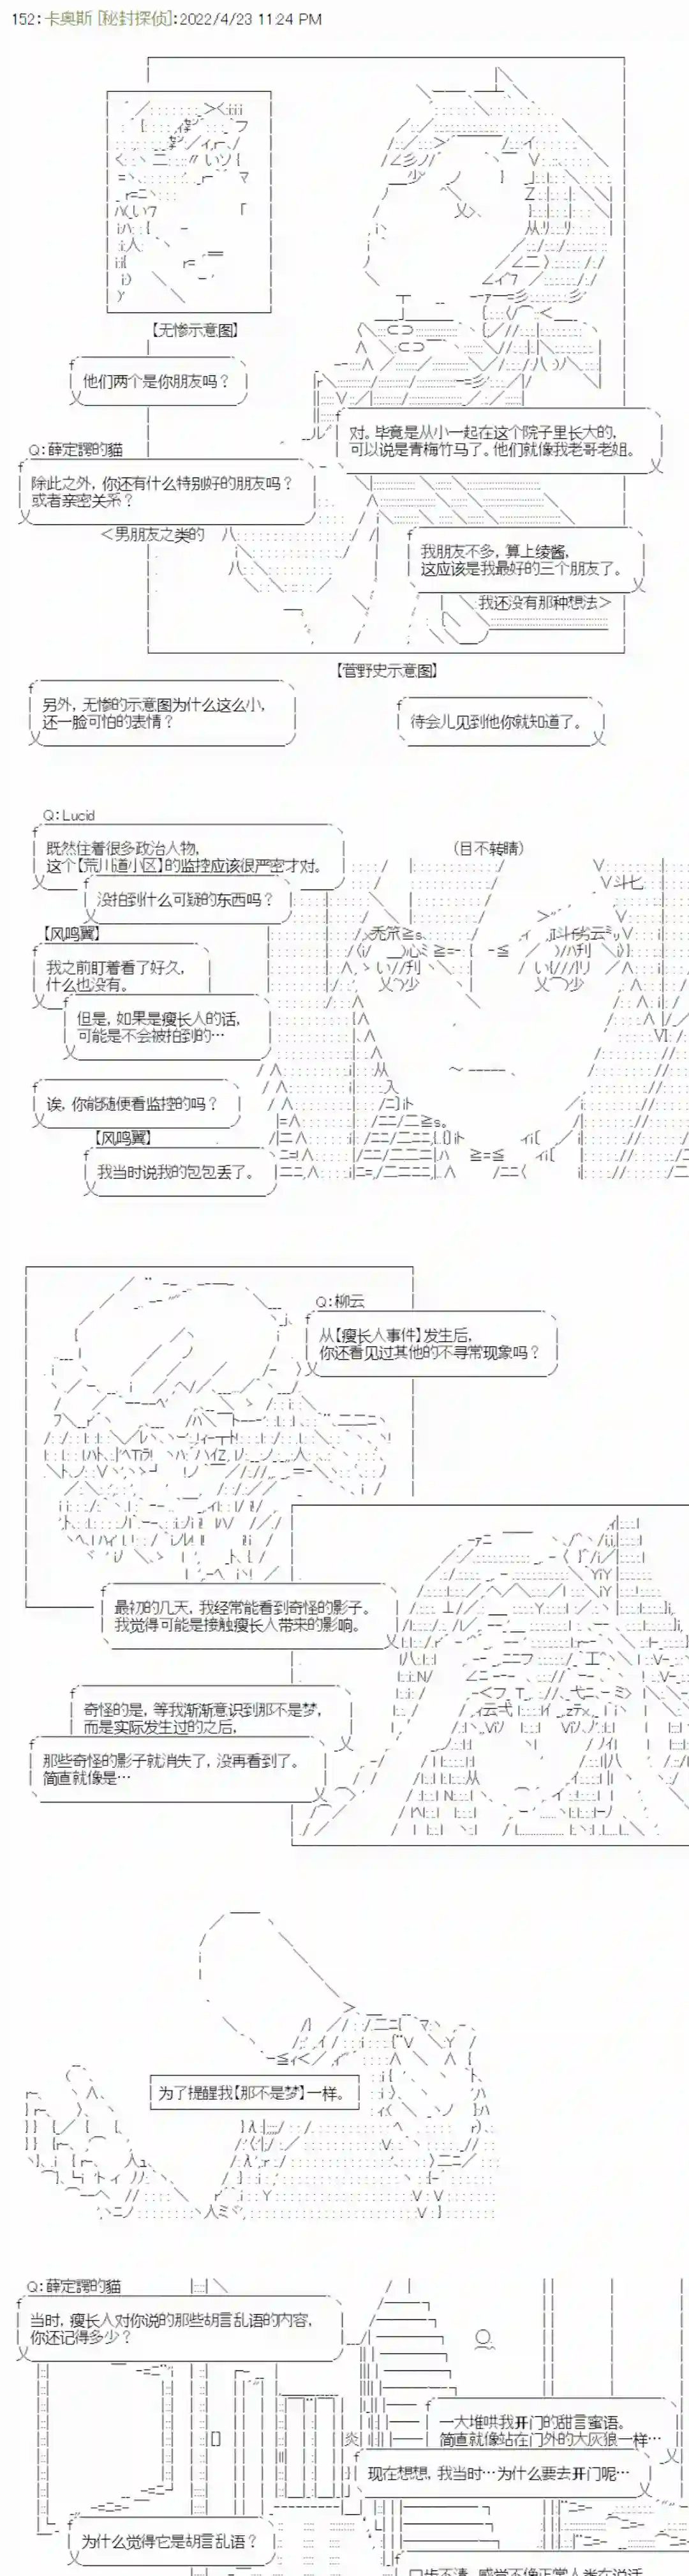 152:卡奥斯 [秘封探侦]:2022/4/23 11:24 PM
【无惨示意图】
他们两个是你朋友吗？
对。毕竟是从小一起在这个院子里长大的，
可以说是青梅竹马了。他们就像我老哥老姐。
Q:薛定諤的貓
除此之外，你还有什么特别好的朋友吗？
或者亲密关系？
＜男朋友之类的
我朋友不多，算上绫酱，
这应该是我最好的三个朋友了。
我还没有那种想法＞
【菅野史示意图】
另外，无惨的示意图为什么这么小，
还一脸可怕的表情？
待会儿见到他你就知道了。
Q:Lucid
既然住着很多政治人物，
这个【荒川道小区】的监控应该很严密才对。
没拍到什么可疑的东西吗？
（目不转睛）
【风鸣翼】
我之前盯着看了好久，
什么也没有。
但是，如果是瘦长人的话，
可能是不会被拍到的…
诶，你能随便看监控的吗？
【风鸣翼】
我当时说我的包包丢了。
Q:柳云
从【瘦长人事件】发生后，
你还看见过其他的不寻常现象吗？
最初的几天，我经常能看到奇怪的影子。
我觉得可能是接触瘦长人带来的影响。
奇怪的是，等我渐渐意识到那不是梦，
而是实际发生过的之后，
那些奇怪的影子就消失了，没再看到了。
简直就像是…
为了提醒我【那不是梦】一样。
Q:薛定諤的貓
当时，瘦长人对你说的那些胡言乱语的内容，
你还记得多少？
一大堆哄我开门的甜言蜜语。
简直就像站在门外的大灰狼一样…
现在想想，我当时…为什么要去开门呢…
为什么觉得它是胡言乱语？